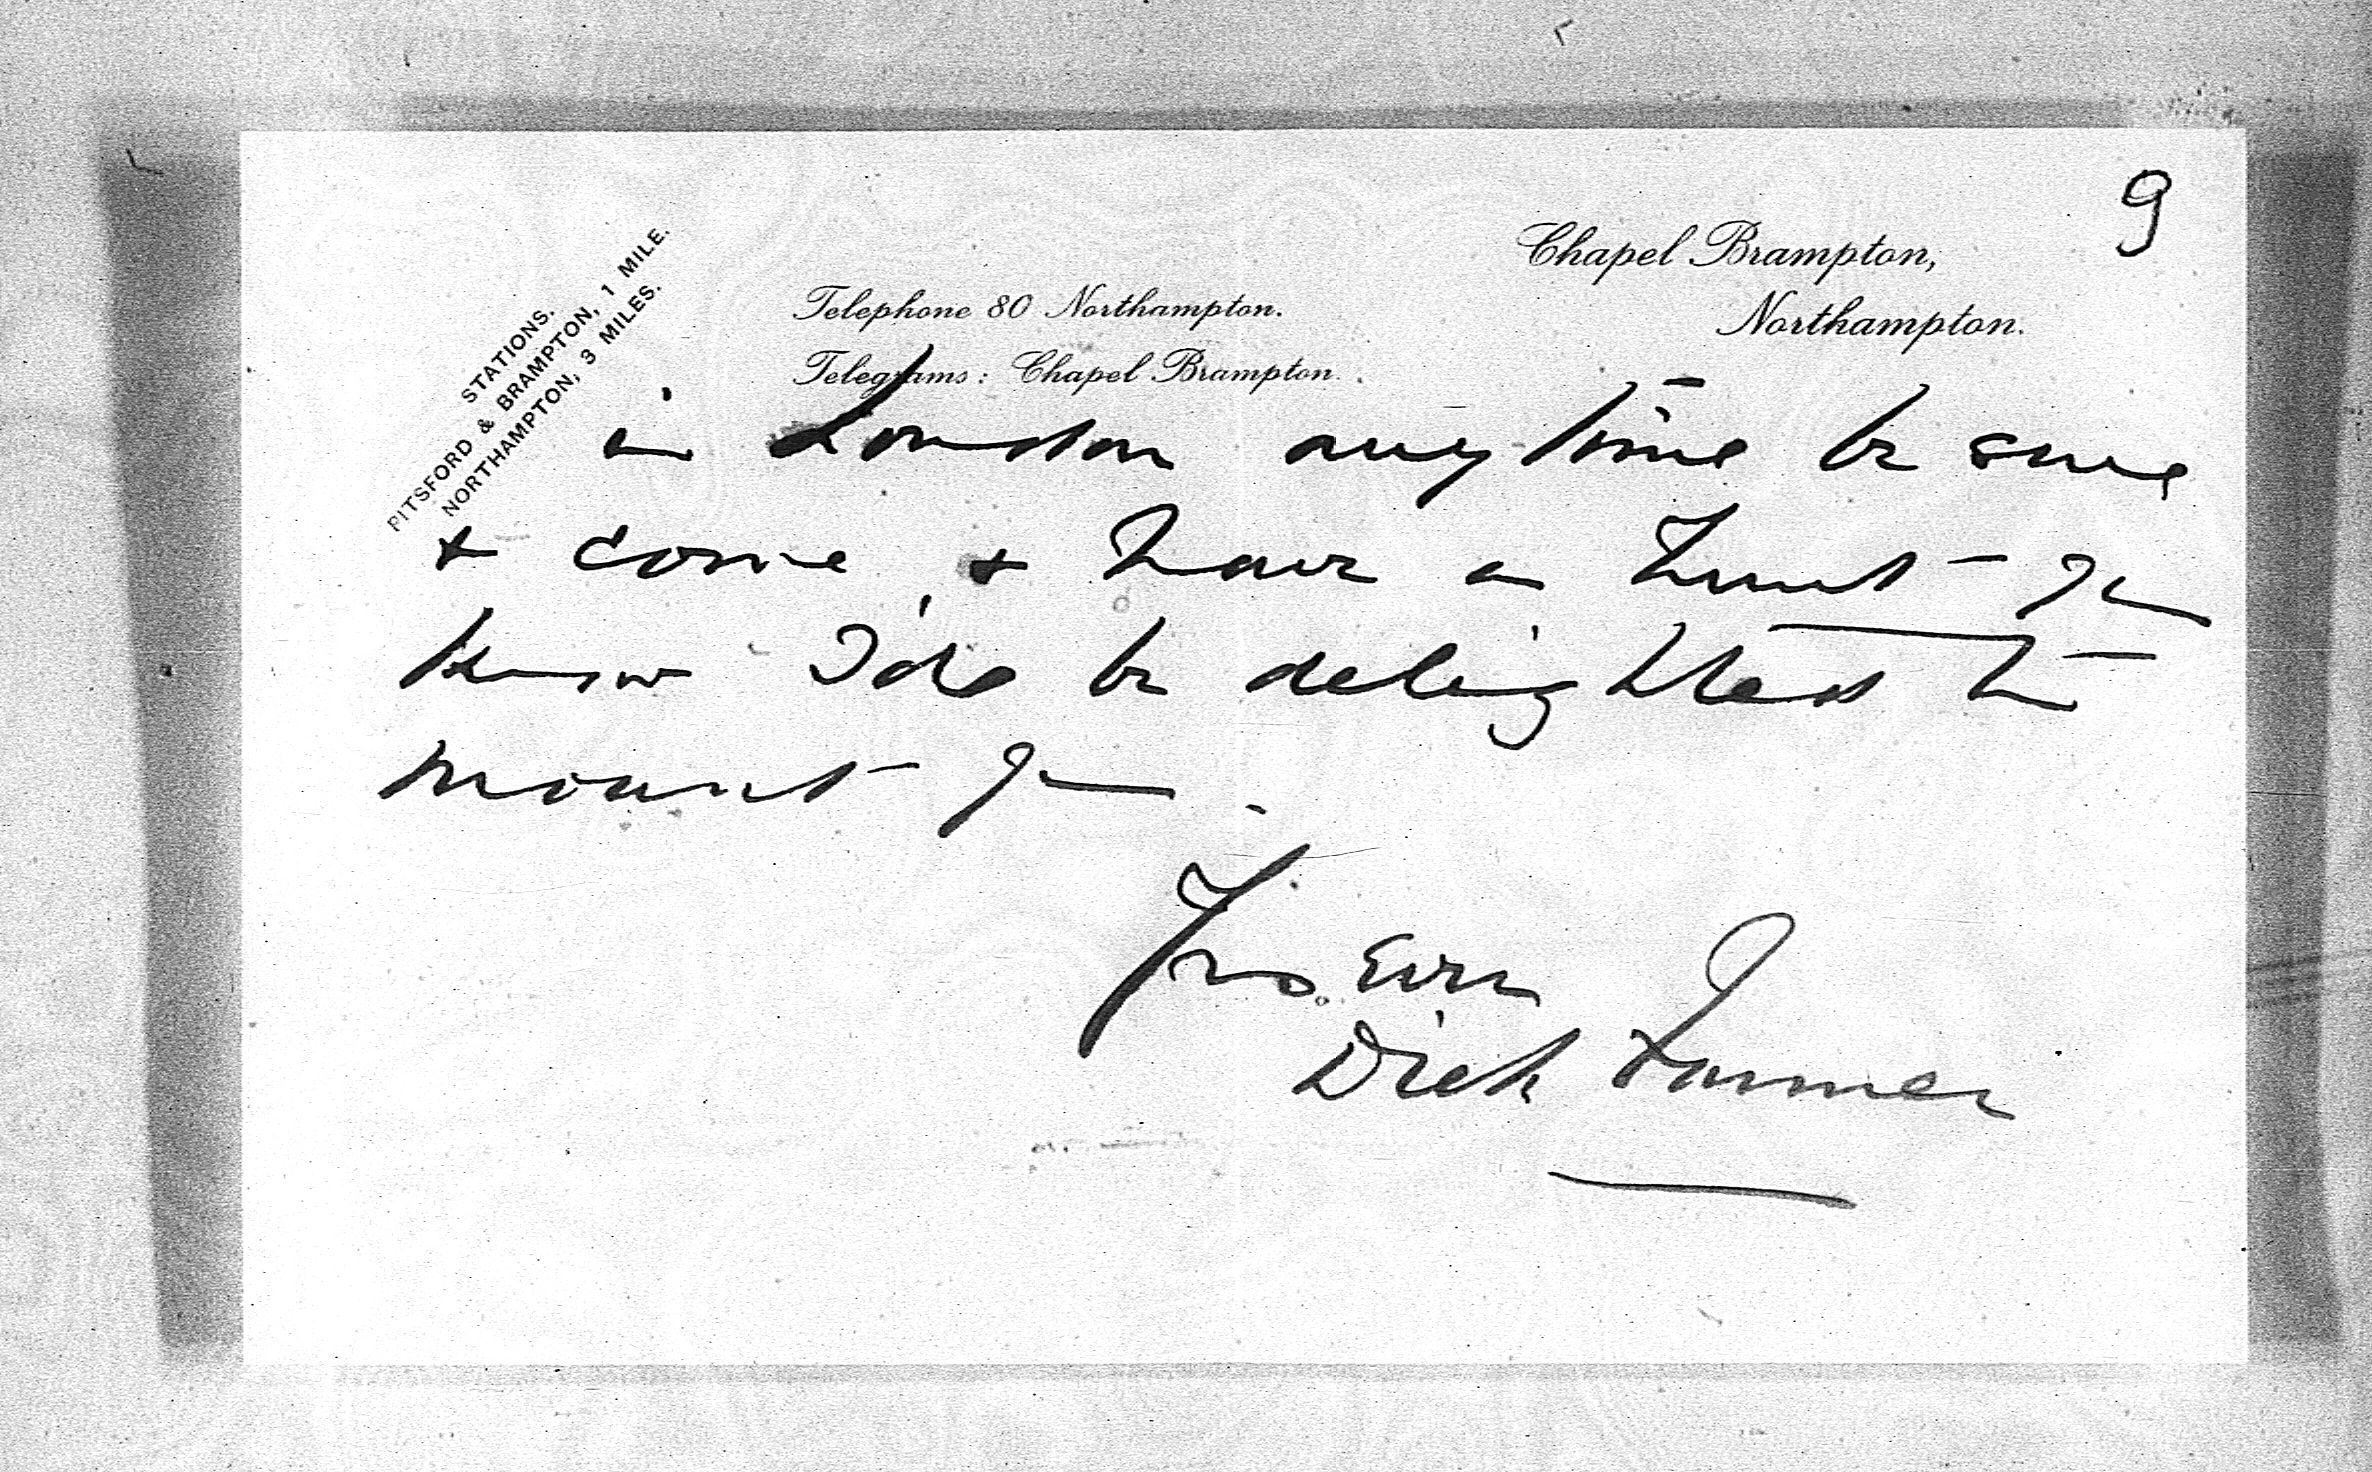 9
Chapel Brampton,
Northampton.
Telephone 80 Northampton.
Telegrams: Chapel Brampton.
STATIONS.
PITSFORD & BRAMPTON, 1 MILE.
NORTHAMPTON, 3 MILES.
in London any time be sure
& come & have a hunt you
know I'd be delighted to
mount you.
Yrs. Ever
Dick